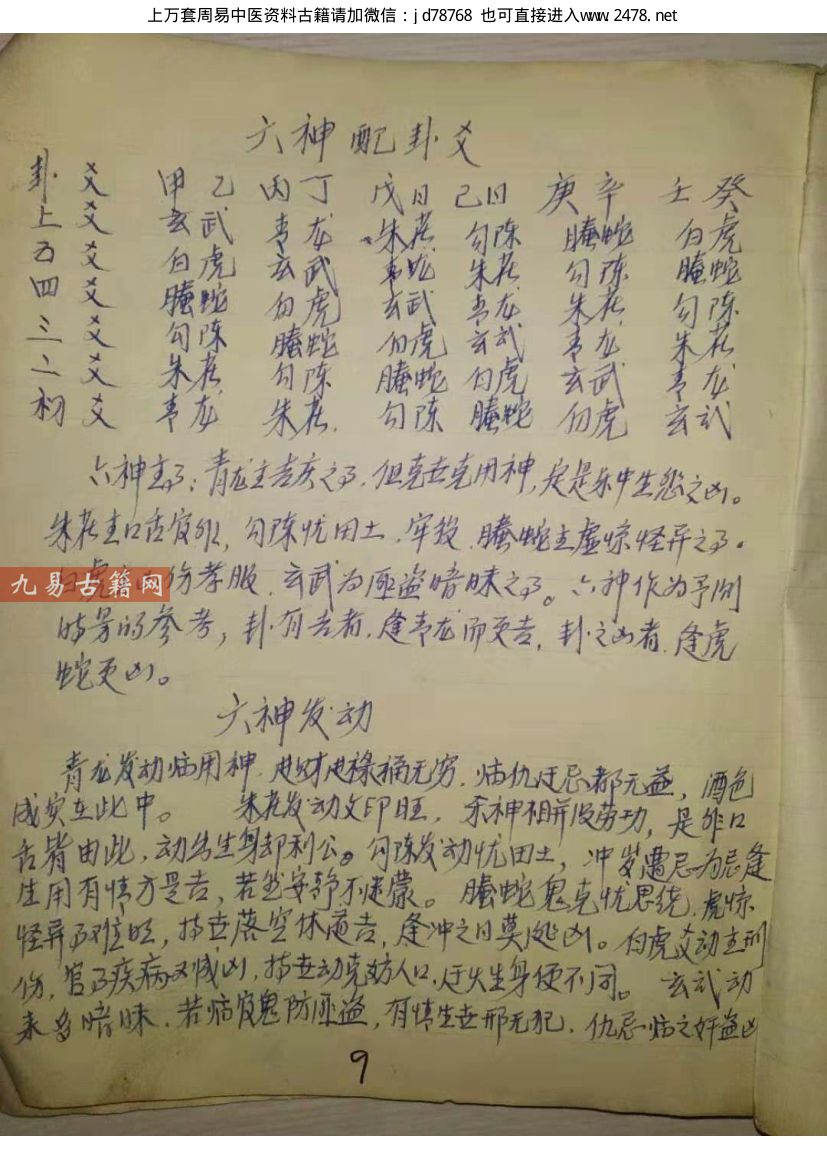 上万套周易中医资料古籍请加微信：jd78768 也可直接进入www.2478.net
六神配卦爻
卦 爻 甲乙 丙丁 戊日 己日 庚辛 壬癸
上 爻 玄武 青龙 朱雀 勾陈 螣蛇 白虎
五 爻 白虎 玄武 青龙 朱雀 勾陈 螣蛇
四 爻 螣蛇 白虎 玄武 青龙 朱雀 勾陈
三 爻 勾陈 螣蛇 白虎 玄武 青龙 朱雀
二 爻 朱雀 勾陈 螣蛇 白虎 玄武 青龙
初 爻 青龙 朱雀 勾陈 螣蛇 白虎 玄武
六神主事：青龙主吉庆之事，但克世克用神，定是乐中生愁之凶。
朱雀主口舌官非，勾陈忧田土，牢役，螣蛇主虚惊怪异之事。
白虎 伤孝服，玄武为匪盗暗昧之事。六神作为予测
时易的参考，卦有吉者，逢青龙而更吉，卦之凶者，逢虎
蛇更凶。
九易古籍网
六神发动
青龙发动临用神，进财进禄福无穷，临仇 忌都无益，酒色
成 在此中。 朱雀发动文印旺， 神相并 劳功，是非口
舌皆由此，动 生身却利公。勾陈发动忧田土，冲岁遭 为忌逢
生用有情方是吉，若然安静不迷蒙。 螣蛇鬼克忧思 ，虎惊
怪异 ，持世落空休道吉，逢冲之日莫 凶。白虎爻动主刑
伤，官事疾病 成凶，持世动克妨人口， 火生身便不同。 玄武动
来多暗昧，若临官鬼防匪盗，有情生世邪无犯，仇忌临之奸盗凶
9